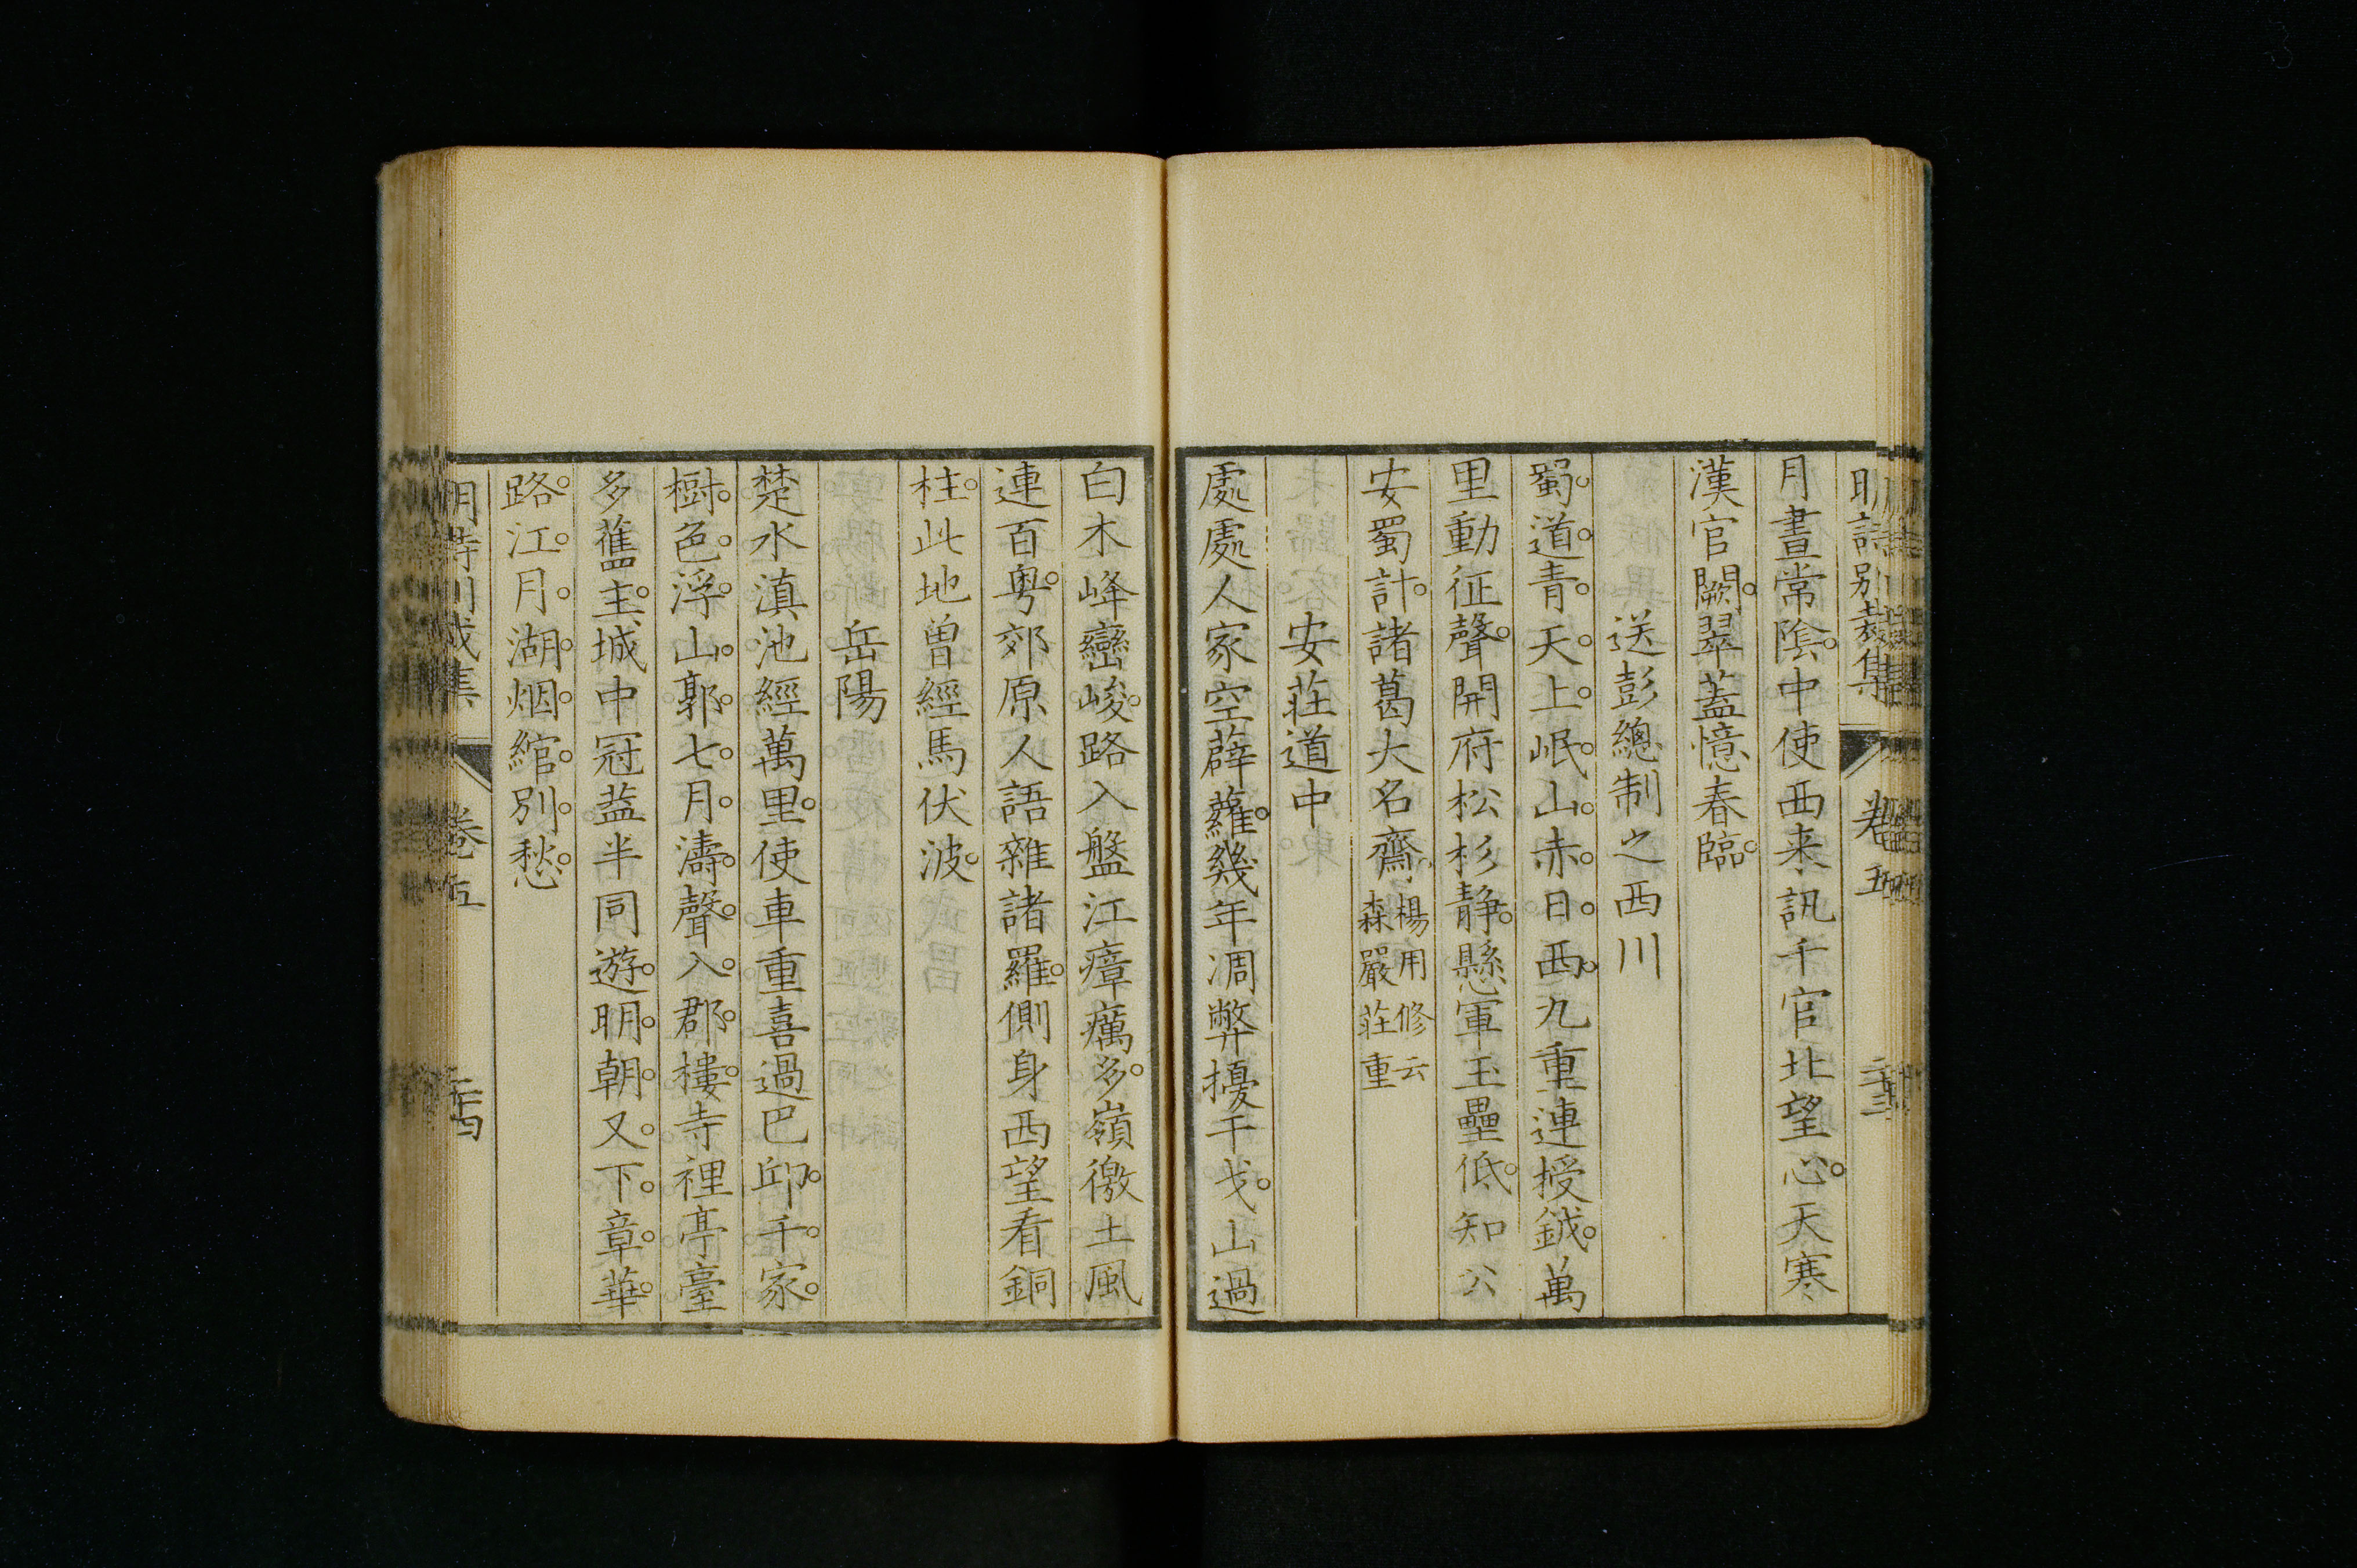 月晝常陰中使西来訊千官北望心天寒
漢官闕翠蓋憶春臨
送彭總制之西川
蜀道青天上岷山赤日西九重連授鉞萬
里動征聲開府松杉静懸軍玉壘低知公
安蜀計諸葛大名齊楊用修云
森嚴莊重
安莊道中
處處人家空薜蘿幾年凋弊擾干戈山過
白木峰巒峻路入盤江瘴癘多嶺徼土風
連百粤郊原人語雜諸羅側身西望看銅
柱此地曾經馬伏波
岳陽
楚水滇池經萬里使車重喜過巴邱千家
樹色浮山郭七月濤聲入郡樓寺裡亭臺
多舊主城中冠葢半同遊明朝又下章華
路江月湖烟綰別愁
卷五